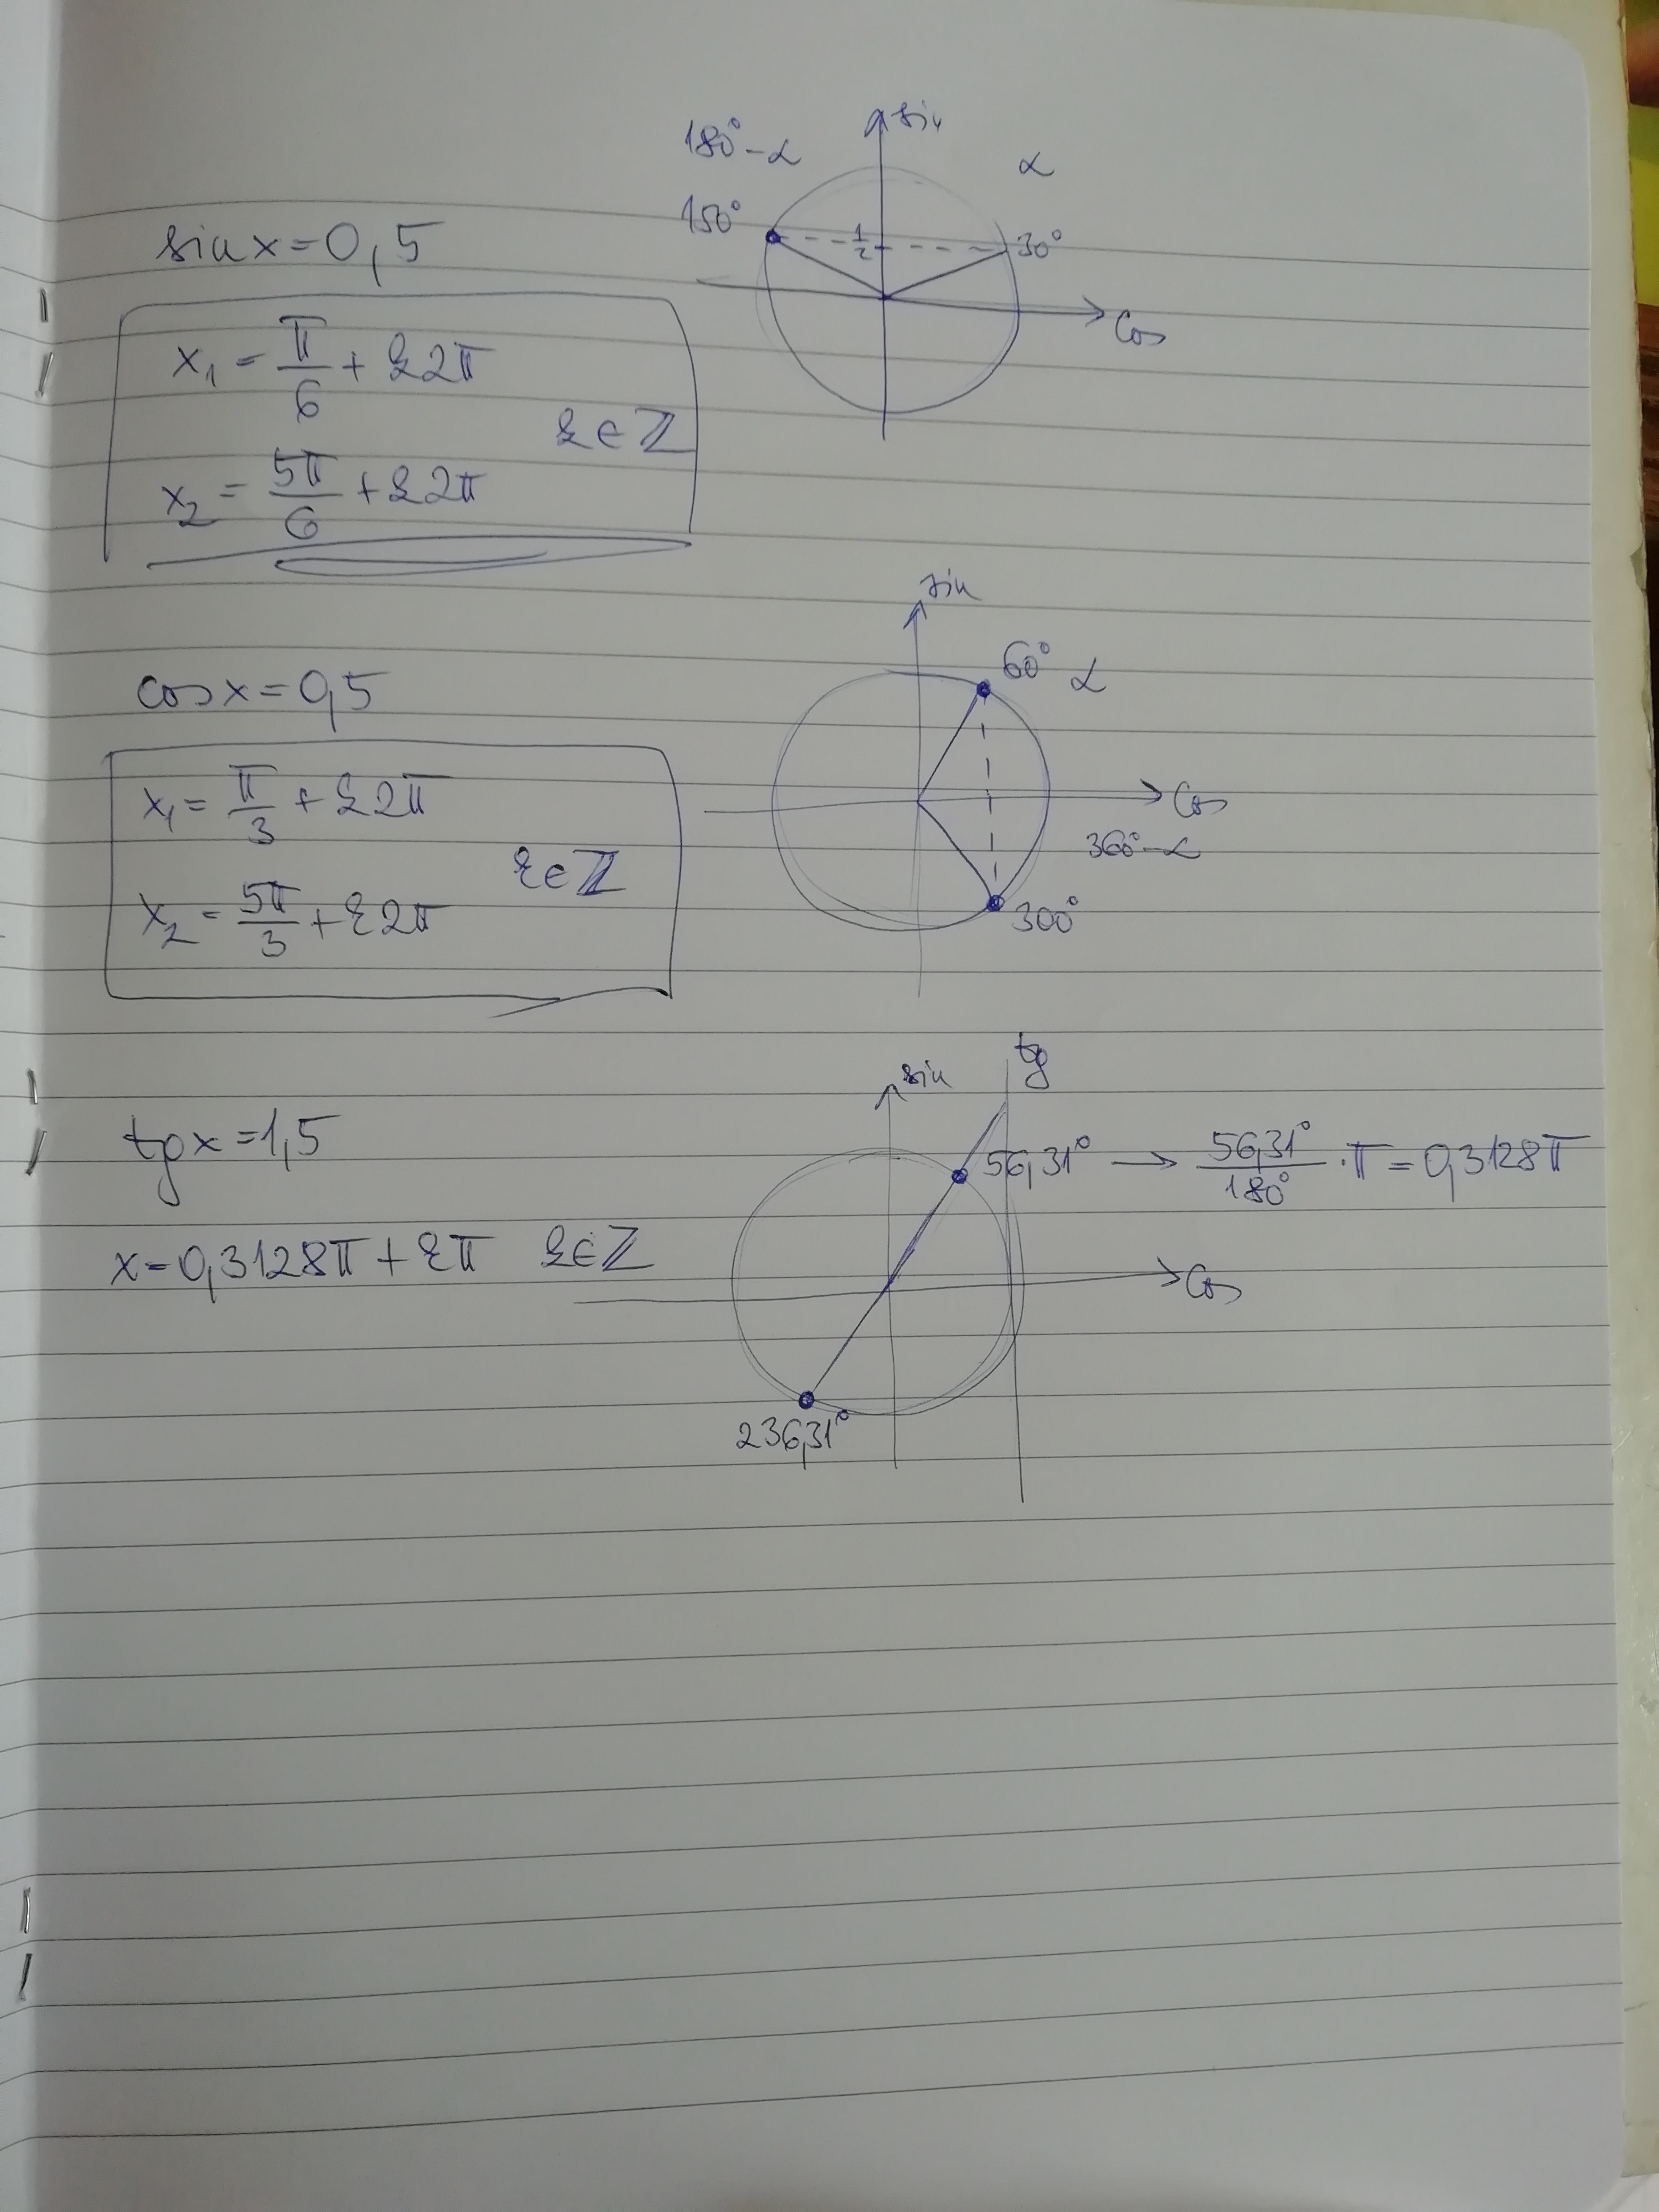 sin x = 0,5
x₁ = π/6 + k2π
k ∈ ℤ
x₂ = 5π/6 + k2π
sin
180° - α
α
150°
1/2
30°
cos
cos x = 0,5
x₁ = π/3 + k2π
k ∈ ℤ
x₂ = 5π/3 + k2π
sin
60° α
cos
360° - α
300°
tg x = 1,5
x = 0,3128π + kπ k ∈ ℤ
sin
tg
56,31° → 56,31°/180° · π = 0,3128π
cos
236,31°